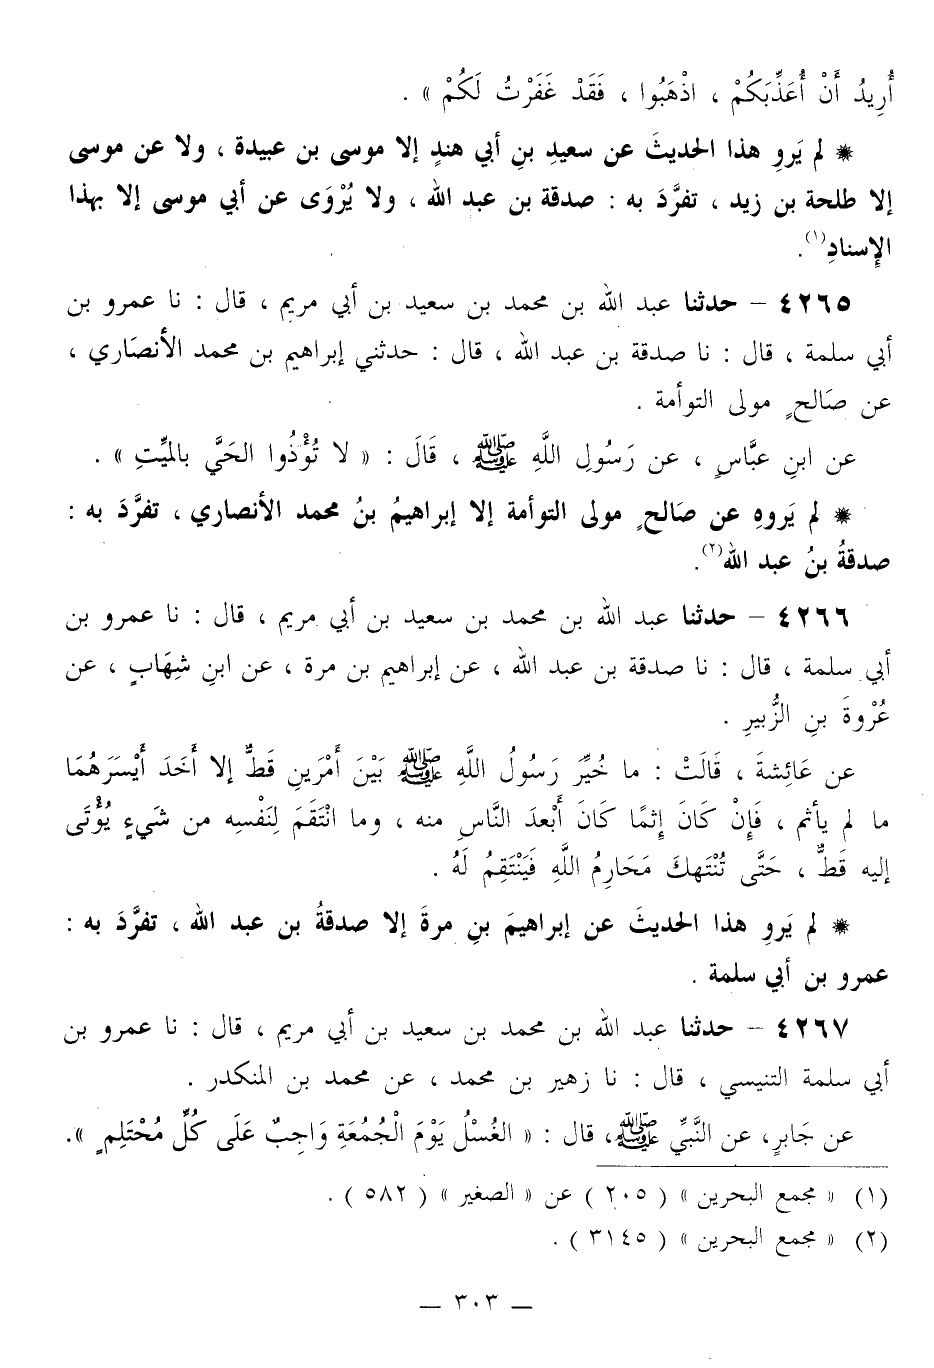 أُرِيدُ أَنْ أُعَذِّبَكُمْ ، اذْهَبُوا ، فَقَدْ غَفَرْتُ لَكُمْ » .
* لم يَروِ هذا الحديثَ عن سعيدِ بنِ أبي هندٍ إلا موسى بن عبيدة ، ولا عن موسى
إلا طلحة بن زيد ، تفرَّدَ به : صدقة بن عبد الله ، ولا يُرْوَى عن أبي موسى إلا بهذا
الإسنادِ(١).
٤٢٦٥ – حدثنا عبد الله بن محمد بن سعيد بن أبي مريم ، قال : نا عمرو بن
أبي سلمة ، قال : نا صدقة بن عبد الله ، قال : حدثني إبراهيم بن محمد الأنصَاري ،
عن صَالحٍ مولى التوأمة .
عن ابنِ عبَّاسٍ ، عن رَسُولِ اللَّهِ ﷺ ، قَالَ : « لا تُؤْذُوا الحَيَّ بالميِّتِ » .
* لم يَروهِ عن صَالحٍ مولى التوأمة إلا إبراهيمُ بنُ محمد الأنصاري ، تفرَّدَ به :
صدقةُ بنُ عبد الله(٢).
٤٢٦٦ – حدثنا عبد الله بن محمد بن سعيد بن أبي مريم ، قال : نا عمرو بن
أبي سلمة ، قال : نا صدقة بن عبد الله ، عن إبراهيم بن مرة ، عن ابنِ شِهَابٍ ، عن
عُرْوةَ بنِ الزُّبيرِ .
عن عَائِشةَ ، قَالَتْ : ما خُيِّرَ رَسُولُ اللَّهِ ﷺ بَيْنَ أَمْرَينِ قَطٌّ إلا أَخَدَ أَيْسَرَهُمَا
ما لم يأثم ، فَإِنْ كَانَ إثمًا كَانَ أَبْعدَ النَّاسِ منه ، وما انْتَقَمَ لِنَفْسِه من شَيءٍ يُؤْتَى
إليه قَطٌّ ، حَتَّى تُنْتَهكَ مَحَارِمُ اللَّهِ فَيَنْتَقِمُ لَهُ .
* لم يَروِ هذا الحديثَ عن إبراهيمَ بنِ مرةَ إلا صدقةُ بن عبد الله ، تفرَّدَ به :
عمرو بن أبي سلمة .
٤٢٦٧ – حدثنا عبد الله بن محمد بن سعيد بن أبي مريم ، قال : نا عمرو بن
أبي سلمة التنيسي ، قال : نا زهير بن محمد ، عن محمد بن المنكدر .
عن جَابرٍ، عن النَّبيِّ ﷺ، قال : « الغُسْلُ يَوْمَ الْجُمُعَةِ وَاجِبٌ عَلَى كُلِّ مُحْتَلِمٍ ».
(١) « مجمع البحرين » ( ٢٠٥ ) عن « الصغير » ( ٥٨٢ ) .
(٢) « مجمع البحرين » ( ٣١٤٥ ) .
— ٣٠٣ —